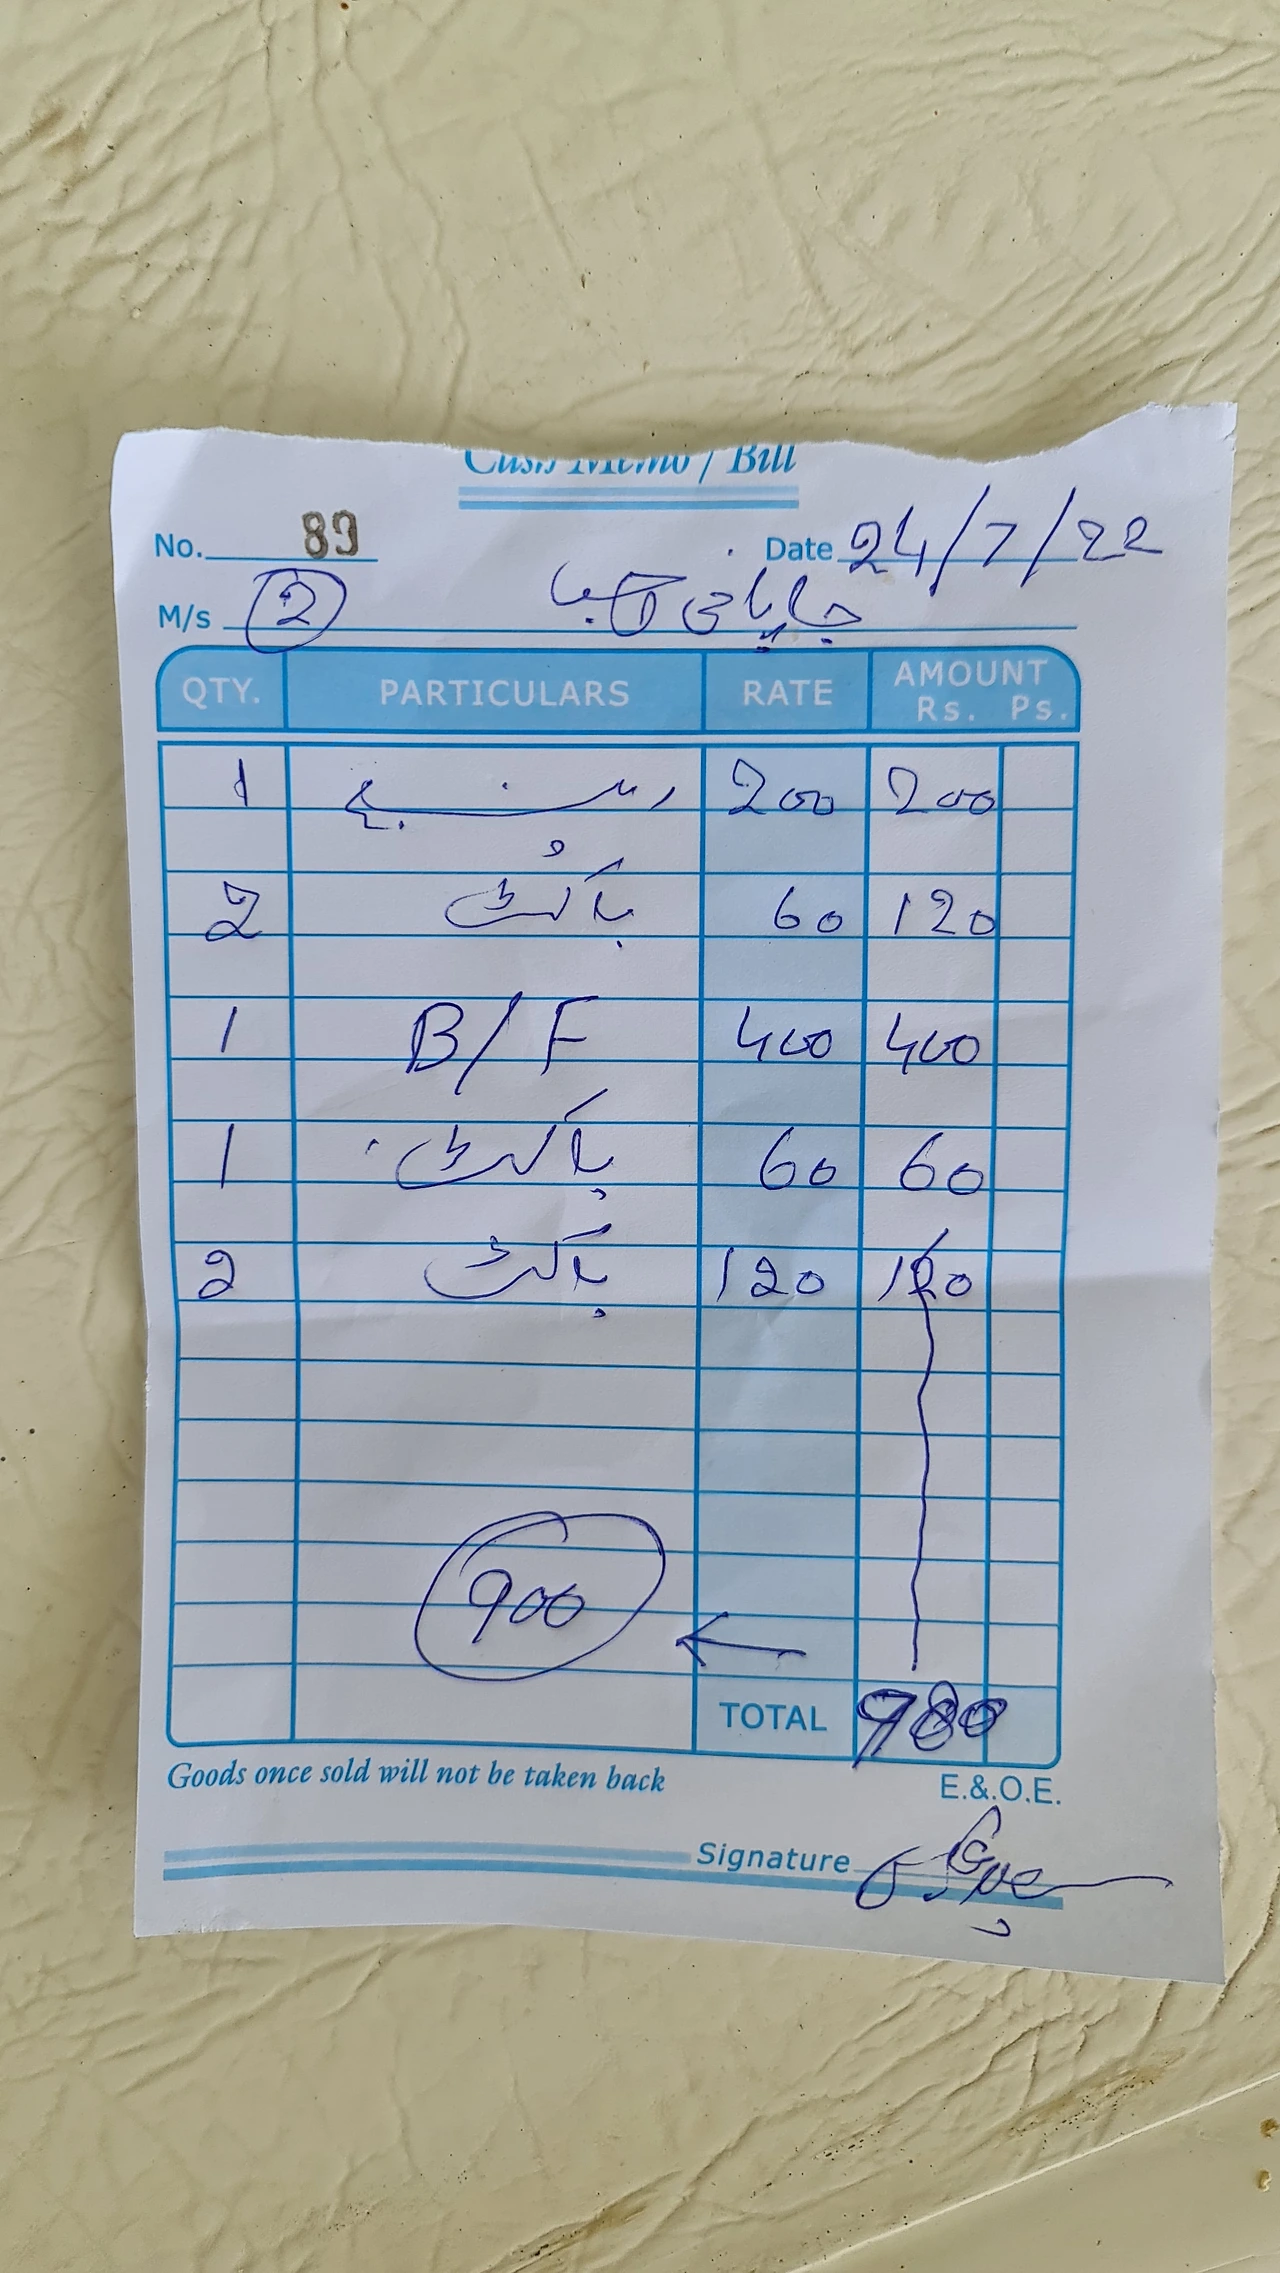 Cash Memo / Bill
No. 89 Date 24/7/22
M/s 2
QTY. PARTICULARS RATE AMOUNT
Rs. Ps.
1 200 200
2 باکٹ 60 120
1 B/F 400 400
1 باکٹ 60 60
2 باکٹ 120 120
900 ←
TOTAL 980
Goods once sold will not be taken back
E.&.O.E.
Signature